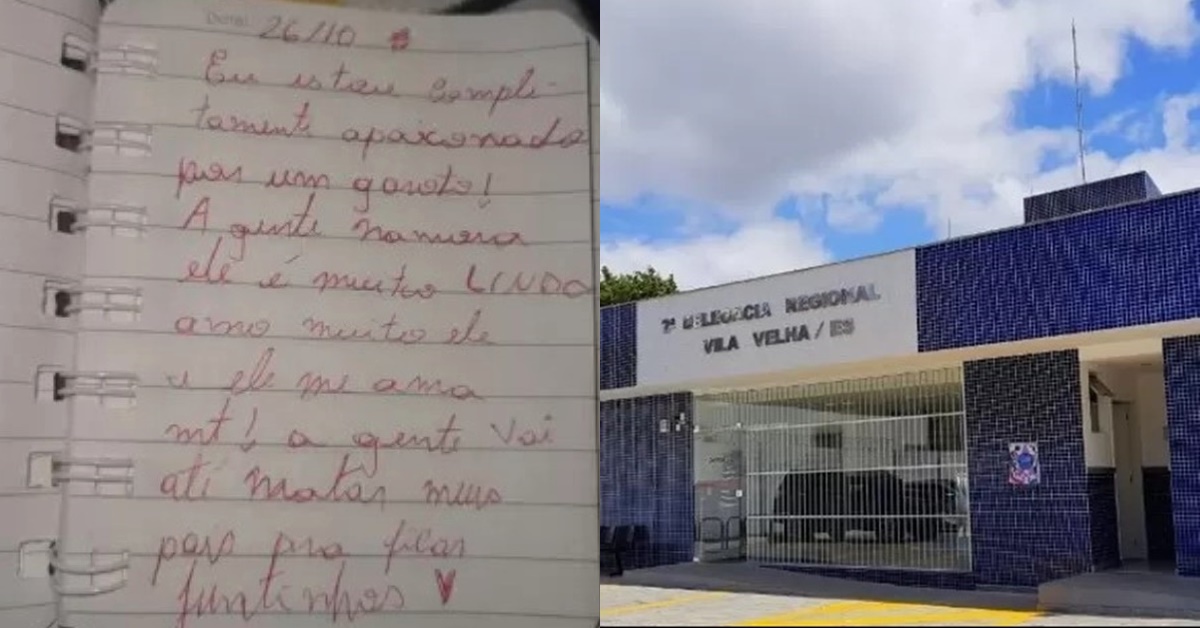 Data: 26/10
Eu estou comple-
tamente apaixonada
por um garoto!
A gente namora
ele é muito LINDO
amo muito ele
e ele me ama
mt! a gente vai
até matar meus
pais pra ficar
juntinhos
2ª DELEGACIA REGIONAL
VILA VELHA / ES